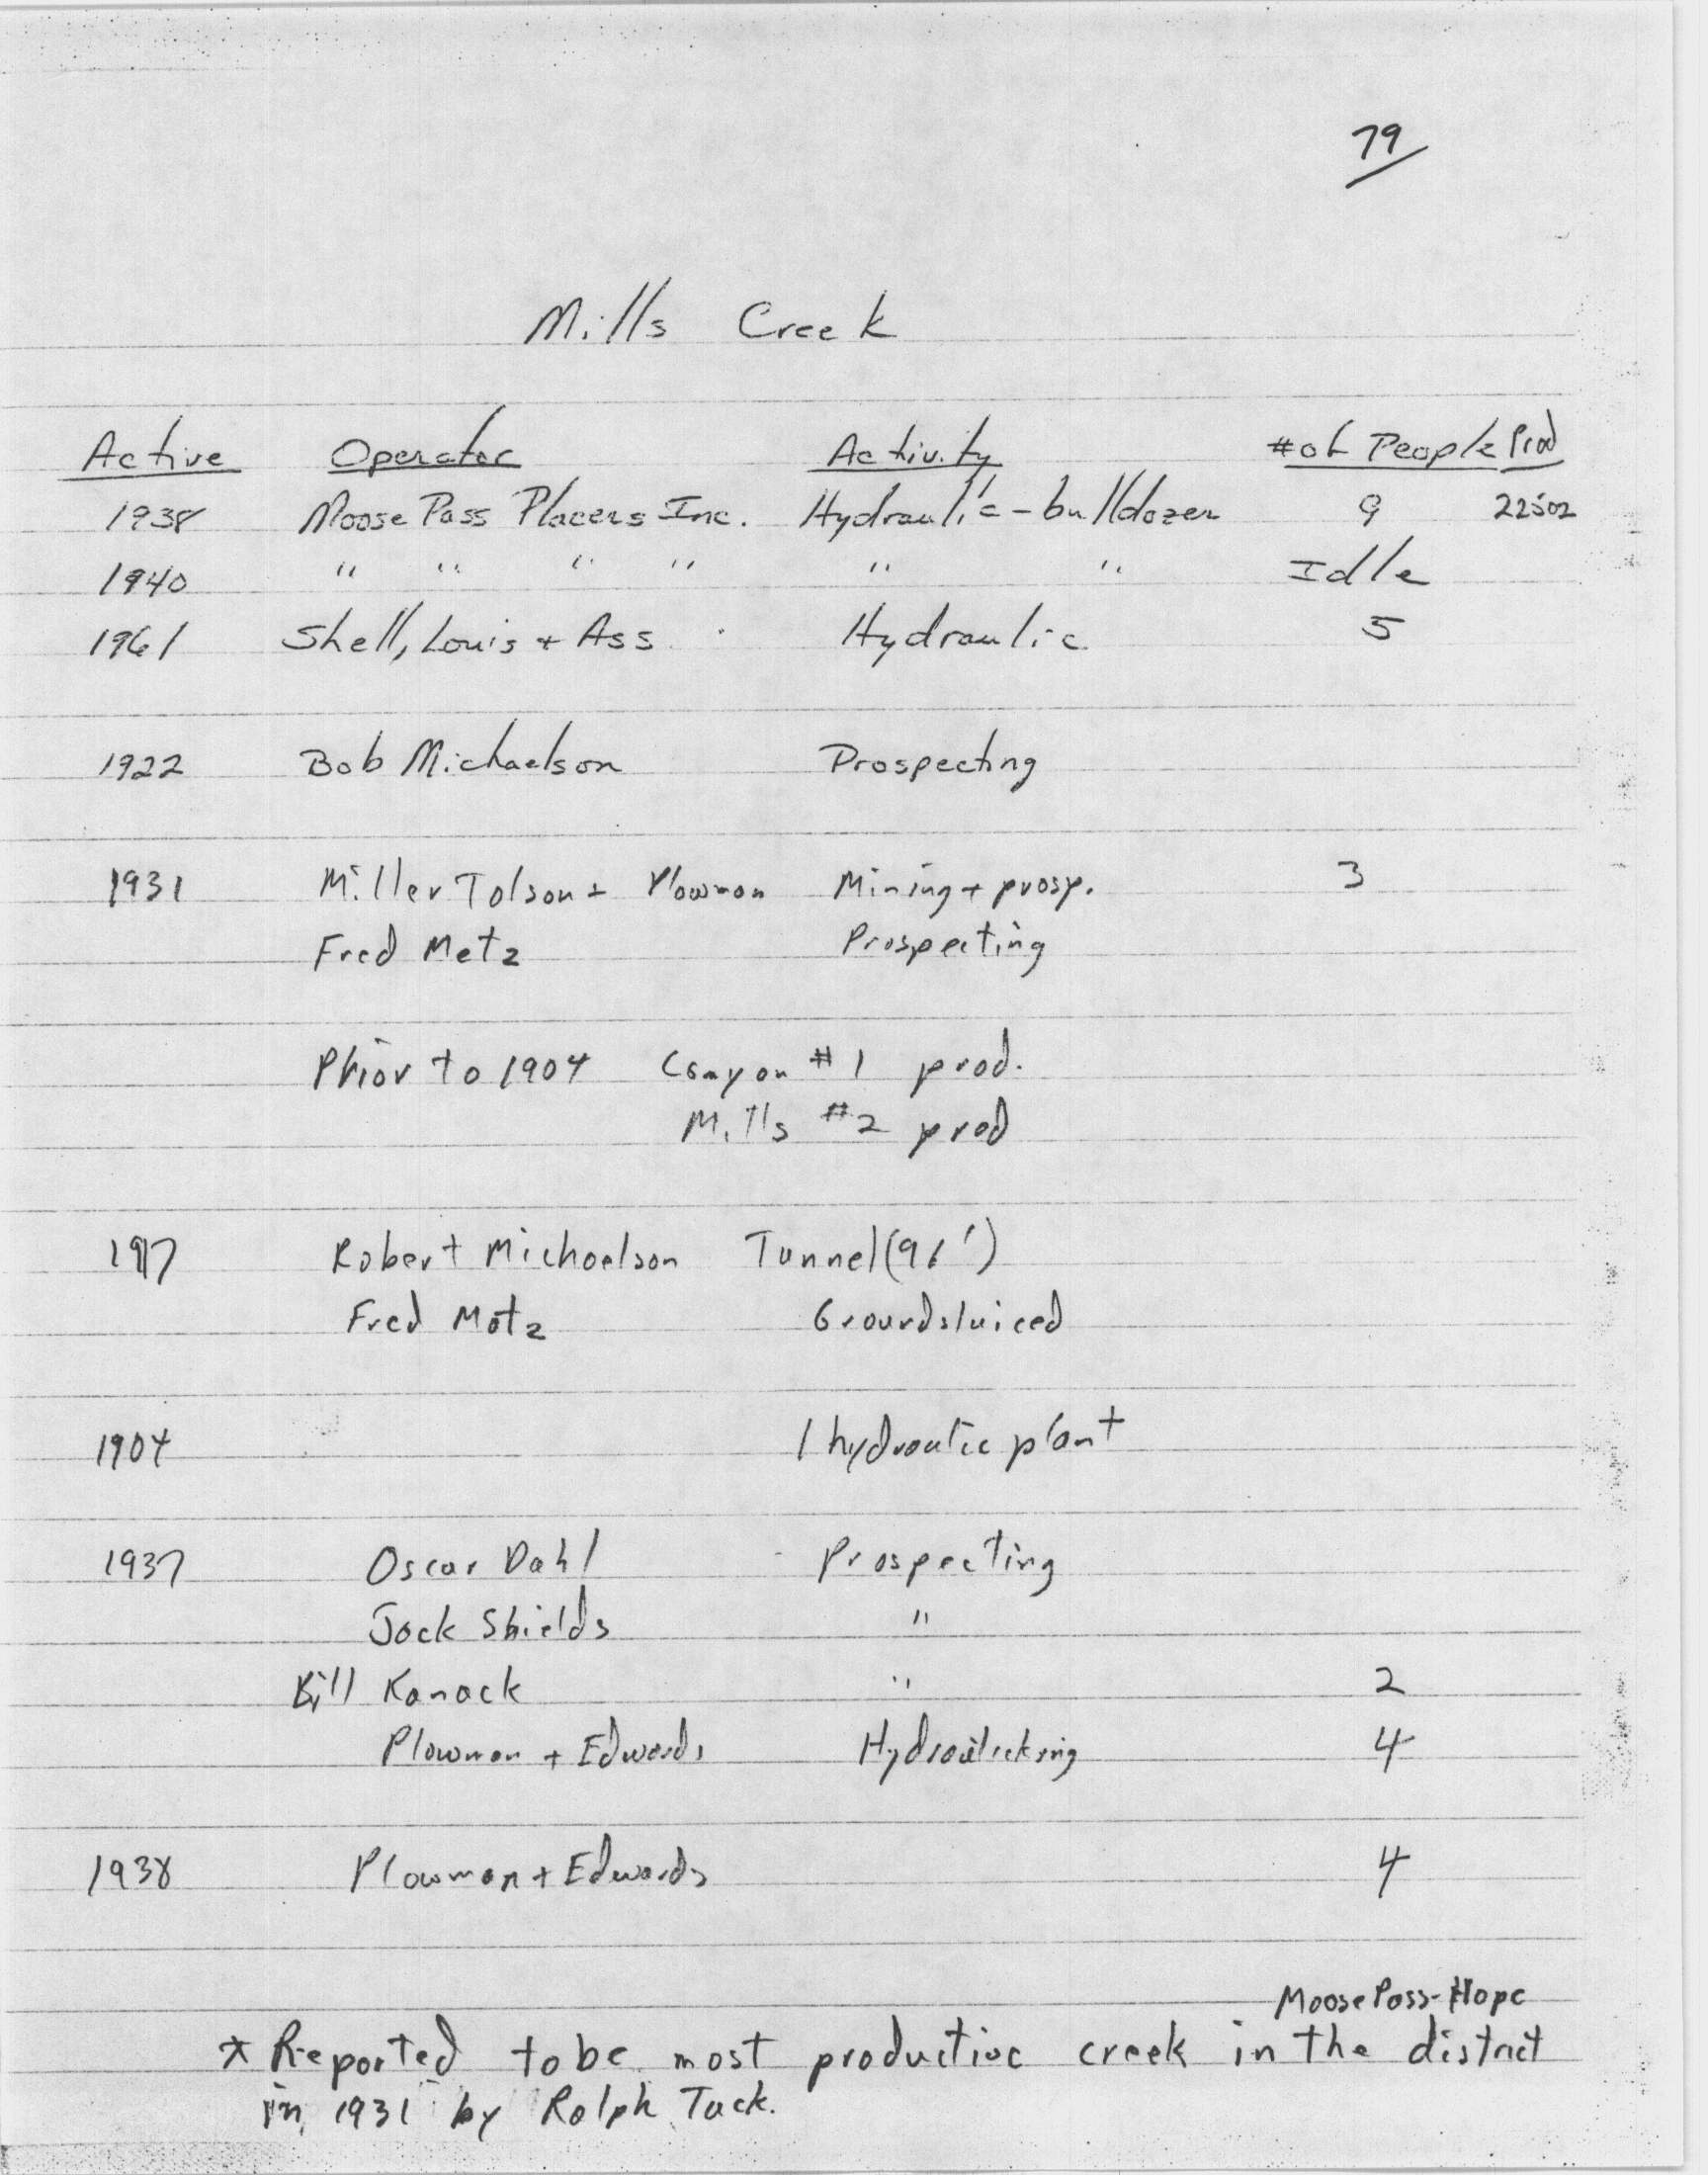 79
Mills Creek
Active Operator Activity # of People Prod
1938 Moose Pass Placers Inc. Hydraulic - bulldozer 9 22502
1940 " " " " " " Idle
1961 Shell, Louis + Ass. Hydraulic 5
1922 Bob Michaelson Prospecting
1931 Miller Tolson + Plowman Mining + prosp. 3
Fred Metz Prospecting
Prior to 1904 Canyon #1 prod.
Mills #2 prod
1917 Robert Michaelson Tunnel (96')
Fred Metz Groundsluiced
1904 1 hydraulic plant
1937 Oscar Dahl Prospecting
Jack Shields "
Bill Kanack " 2
Plowman + Edwards Hydraulicking 4
1938 Plowman + Edwards 4
Moose Pass-Hope
* Reported to be most productive creek in the district
in 1931 by Ralph Tuck.